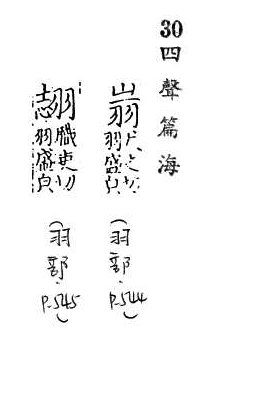 30四聲篇海
尺之切
羽盛皃
(羽部.P.544)
職吏切
羽盛皃
(羽部.P.545)